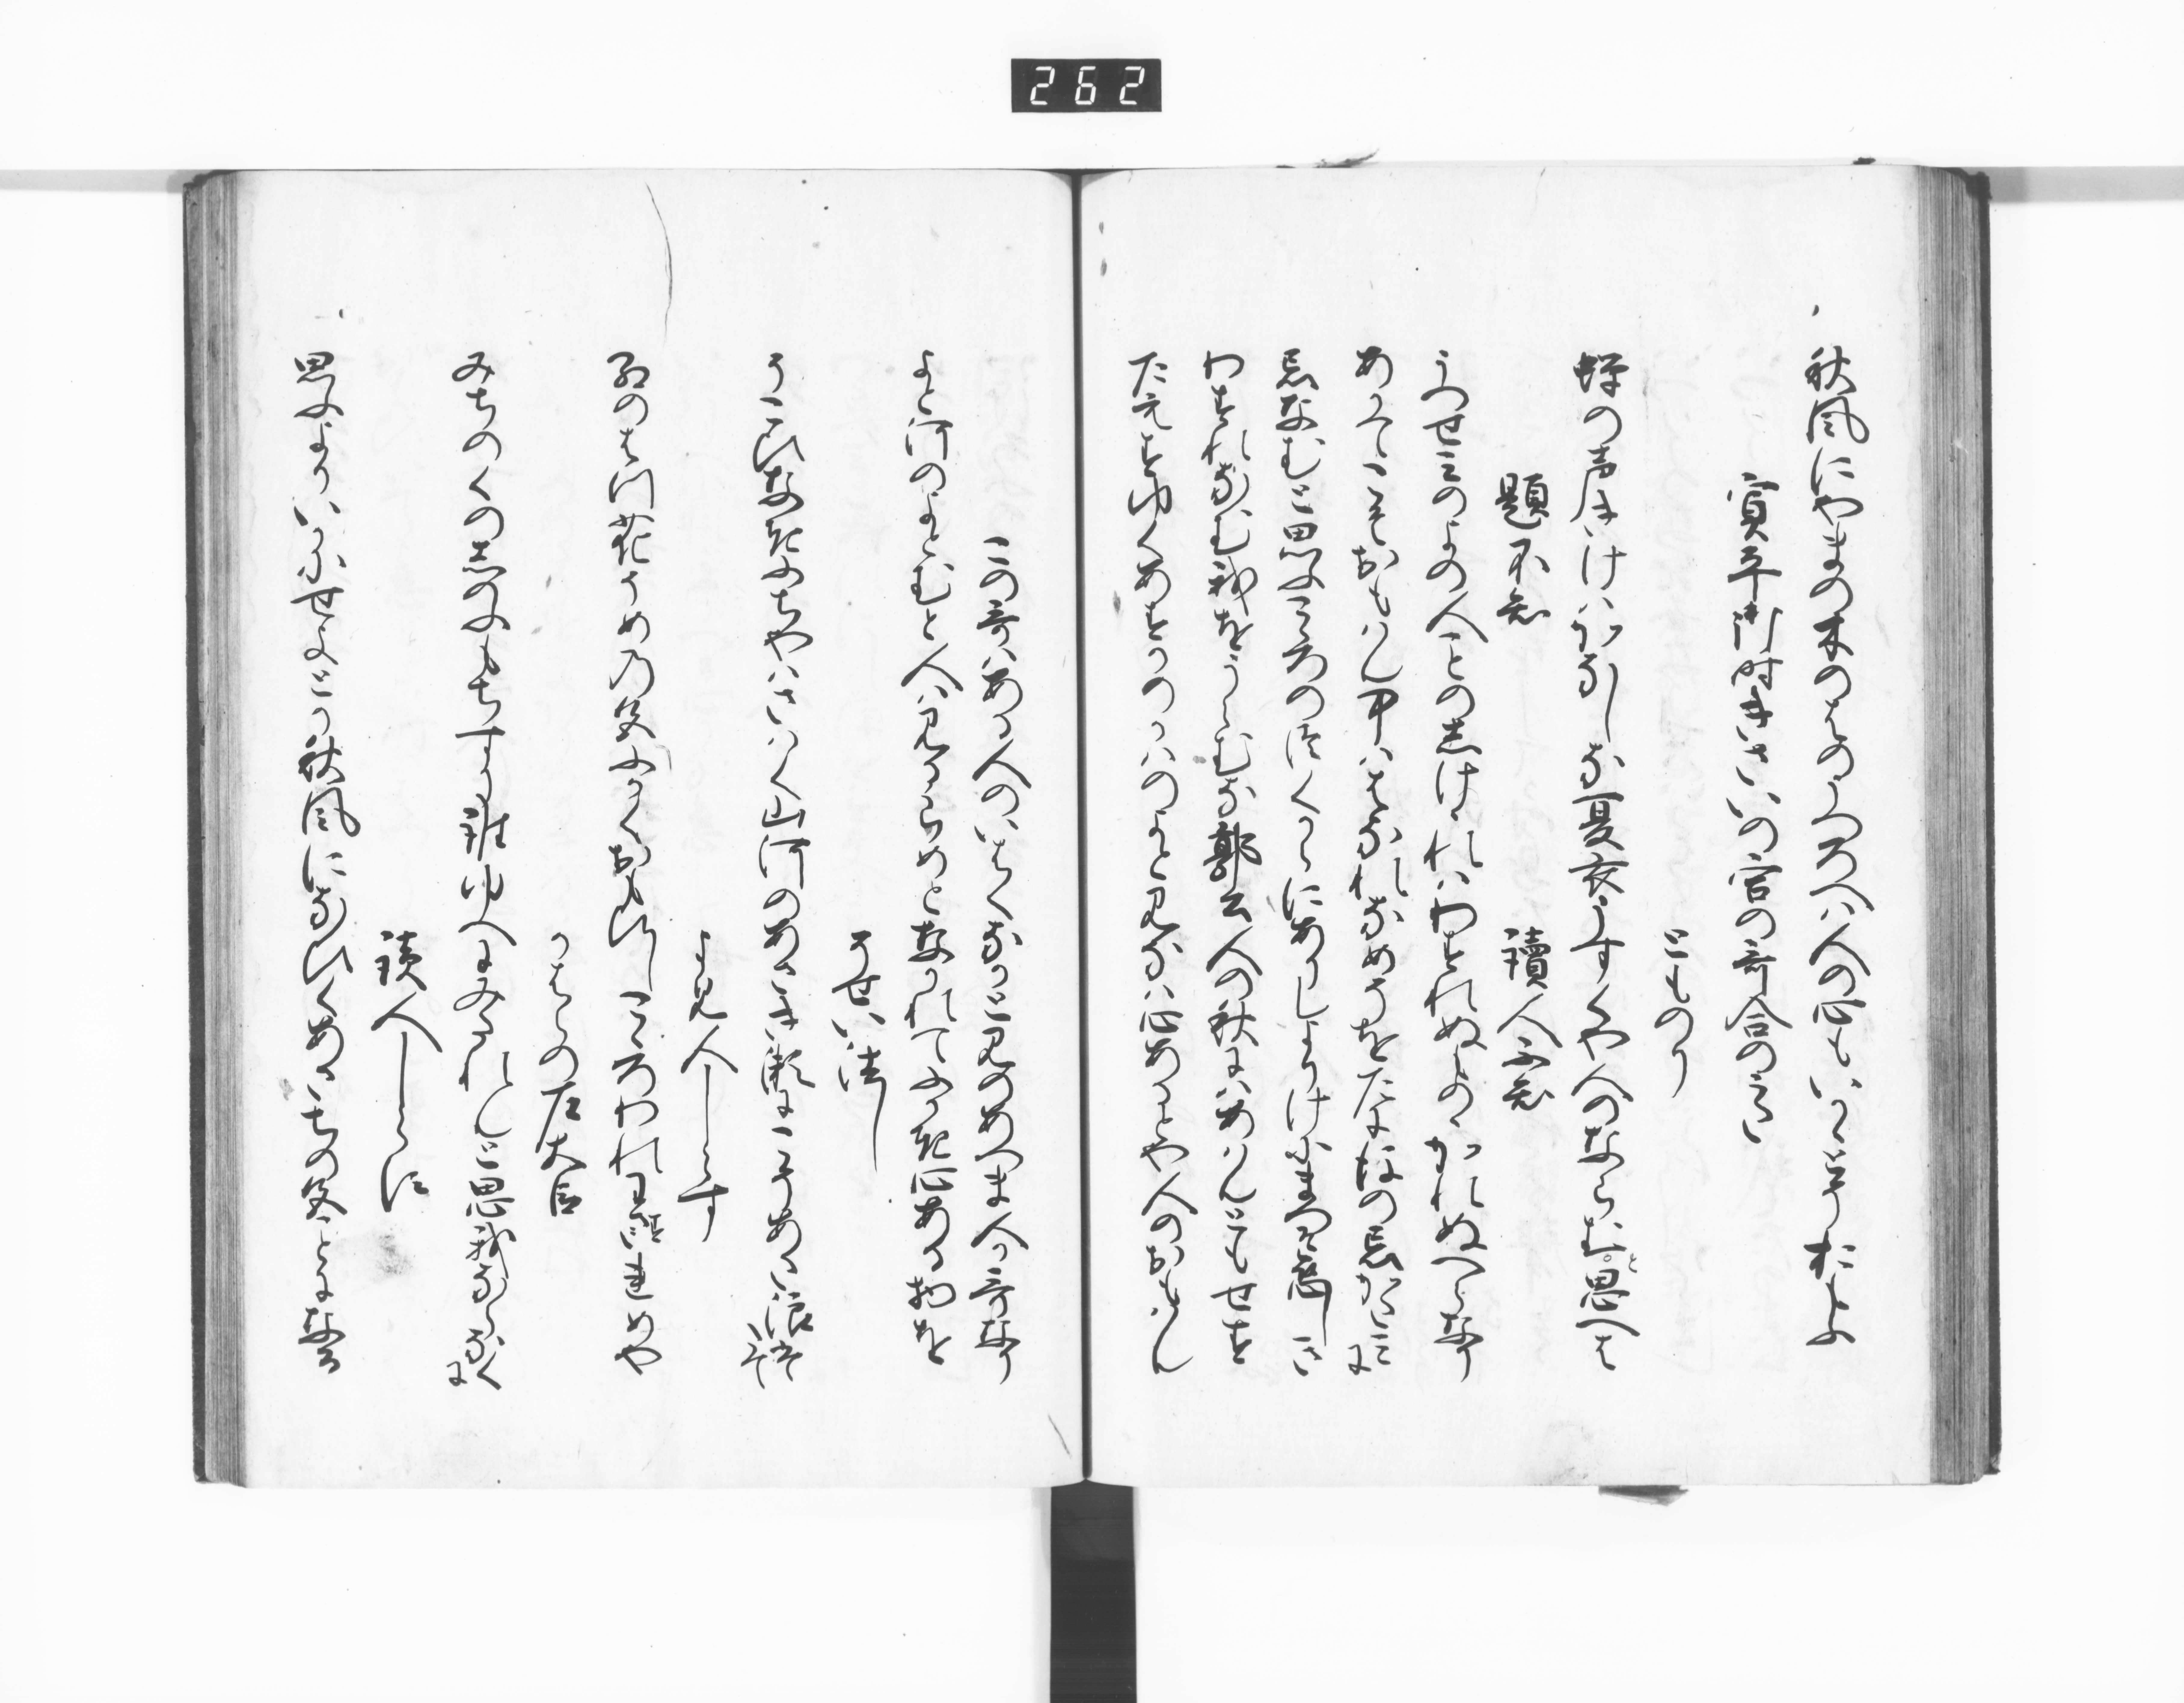 262
秋風にやまの木のはのうつろへは人の心もいかゝとそおもふ
寛平御時きさいの宮の哥合のうた
とものり
蝉の声きけはかなしな夏衣うすくや人のならむと思へは
題不知　讀人不知
うつせみのよの人ことの志けゝれはわすれぬものゝかれぬへらなり
あかてこそおもはん中ははなれなめそをたに後の忘かたみに
忘なむと思ふこゝろの徒くからにありしよりけにまつそ恋しき
わすれなむ我をうらむな郭公人の秋にはあはんともせす
たえすゆくあすかのかはのよとみなは心あるとや人のおもはん
この哥ある人のいはくなかとみのあつま人か哥なり
よと河のよとむと人は見るらめと流れてふかき心ある物を
そせい法し
そこひなきふちやはさはく山河のあさき瀬にこそあた浪はたて
よみ人しらす
紅のはつ花そめの色ふかくおもひしこゝろわれわすれめや
かはらの左大臣
みちのくの志のふもちすり誰ゆへにみたれんと思我ならなくに
読人しらす
思ふよりいかにせよとか秋風になひくあさちの色ことになる